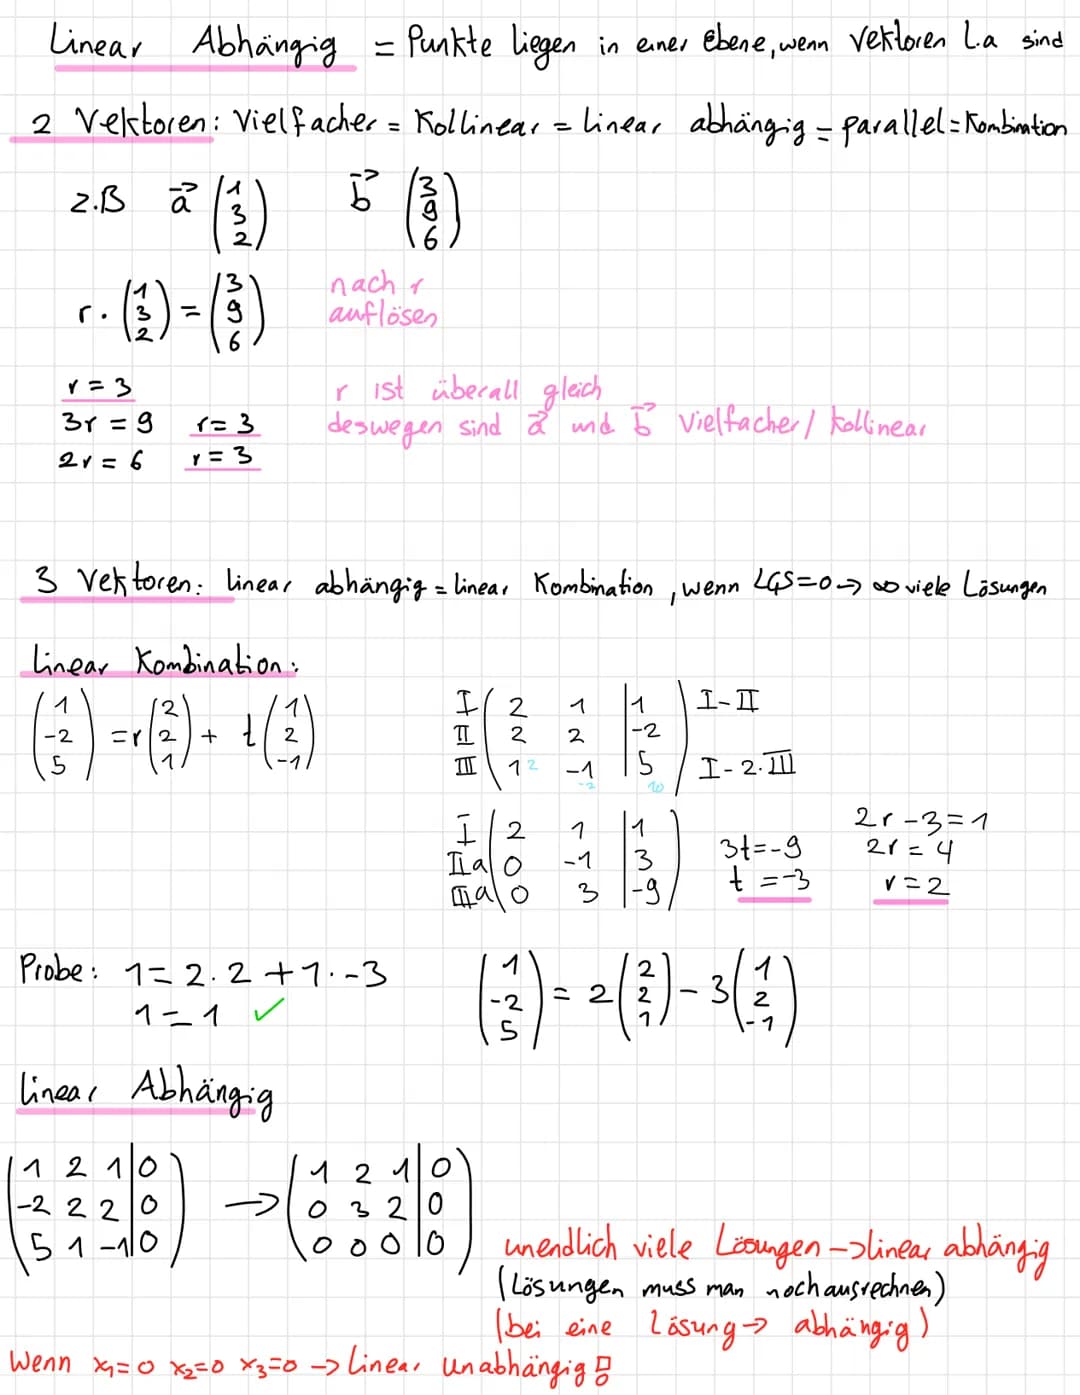 Linear Abhängig = Punkte liegen in einer Ebene, wenn Vektoren l.a sind
2 Vektoren: Vielfacher = Kollinear = linear abhängig = parallel = Kombination
z.B a⃗ (1 3 2) b⃗ (3 9 6)
r · (1 3 2) = (3 9 6)
nach r
auflösen
r = 3
3r = 9 r = 3
2r = 6 r = 3
r ist überall gleich
deswegen sind a⃗ und b⃗ Vielfacher / kollinear
3 Vektoren: linear abhängig = linear Kombination, wenn LGS=0 → ∞ viele Lösungen
Linear Kombination:
(1 -2 5) = r (2 2 1) + t (1 2 -1)
I ( 2 1 | 1 ) I-II
II ( 2 2 | -2 )
III ( 1 2 -1 -2 | 5 10 ) I-2·III
I ( 2 1 | 1 )
IIa ( 0 -1 | 3 )
IIIa ( 0 3 | -9 )
3t=-9
t = -3
2r-3=1
2r = 4
r = 2
Probe: 1 = 2·2 + 1·-3
1 = 1 ✓
(1 -2 5) = 2 (2 2 1) - 3 (1 2 -1)
linear Abhängig
( 1 2 1 | 0 ) → ( 1 2 1 | 0 )
( -2 2 2 | 0 ) ( 0 3 2 | 0 )
( 5 1 -1 | 0 ) ( 0 0 0 | 0 )
unendlich viele Lösungen → linear abhängig
(Lösungen muss man noch ausrechnen)
(bei eine Lösung → abhängig)
Wenn x₁=0 x₂=0 x₃=0 → linear unabhängig!